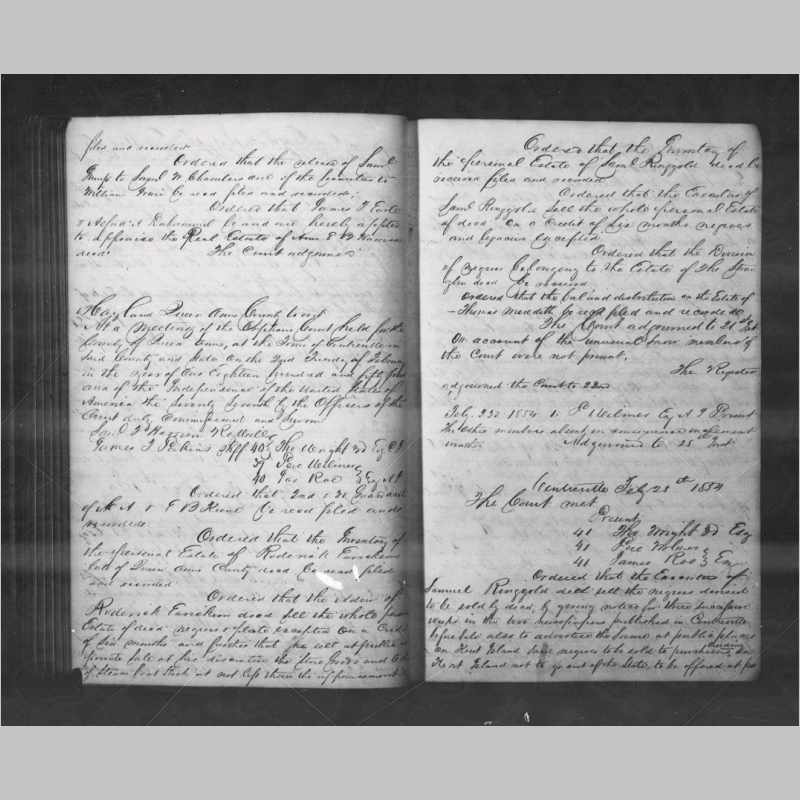 files and recorded
Ordered that the release of Saml
to Saml W Chambers and of the
William be read filed and recorded.
Ordered that James T Earle
& be and are hereby appted
to appraise the Real Estate of Ann E B Harrison
decd. The Court adjourned
Maryland Queen Anns County to wit
At a meeting of the Orphans Court held for the
County of Queen Anns, at the Town of Centreville in
said County and State on the 2nd Tuesday of February
in the year of Our Eighteen hundred and fifty four
and of the Independence of the United States of
America the seventy by the Officers of the
Court duly Commissioned and Sworn
Saml T Harrison Regr Wills
James T Jenkins Shff 40 Tho Wright 3d Esq C J
39 Pere Wilmer
40 Jas Roe Esq A J
Ordered that 2nd & 3d Guard acct
of A & F B be read filed and
recorded
Ordered that the Inventory of
the personal Estate of Roderick
late of Queen Anns County decd be read filed
and recorded
Ordered that the
Roderick decd sell the whole person
Estate of decd negroes & plate excepted on a Credit
of six months and further that she sell at public or
private sale at her discretion the Store Goods and
of Steam boat Stock at not less than the appraisement
Ordered that the Inventory of
the personal Estate of Saml Ringgold decd be
received filed and recorded
Ordered that the Executors of
Saml Ringgold sell the whole personal Estate
of decd on a Credit of six months negroes
and legacies excepted
Ordered that the Division
of negroes belonging to the Estate of Tho
decd be received
Ordered that the bal and distribution on the Estate of
Thomas Meredith be read filed and recorded
The Court adjourned to 21st Inst
On account of the unusual snow members of
the Court were not present.
The Register
adjourned the Court to 22nd
Feby 22d 1854 P Wilmer Esq A J Present
the other members absent in consequence
Adjourned to 28th Inst
Centreville Feby 28th 1854
The Court met
Present
41 Tho Wright 3d Esq
41 Pere Wilmer
41 James Roe Esq
Ordered that the Executors of
Samuel Ringgold decd sell the negroes
to be sold by decd, by giving notice for three successive
weeks in the two newspapers published in Centreville
before sale also to advertise the same at public places
on Kent Island said negroes to be sold to purchasers on
Kent Island not to go out of the State, to be offered at